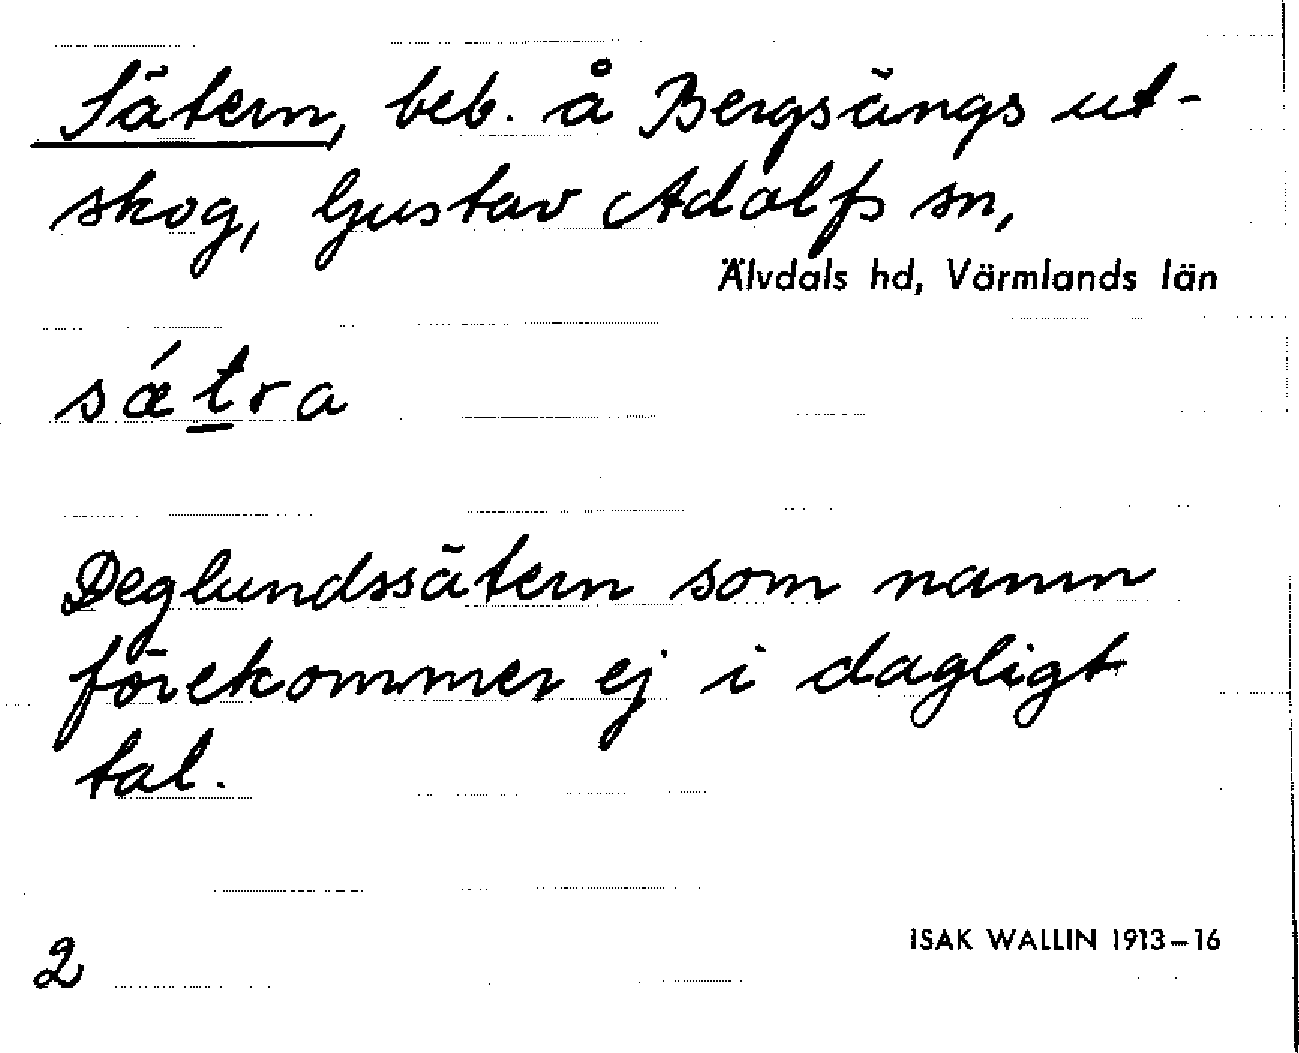 Sätern, beb. å Bergsängs ut-
skog, Gustav Adolfs sn,
Älvdals hd, Värmlands län
sǽt̲ra
Deglundssätern som namn
förekommer ej i dagligt
tal.
ISAK WALLIN 1913–16
2